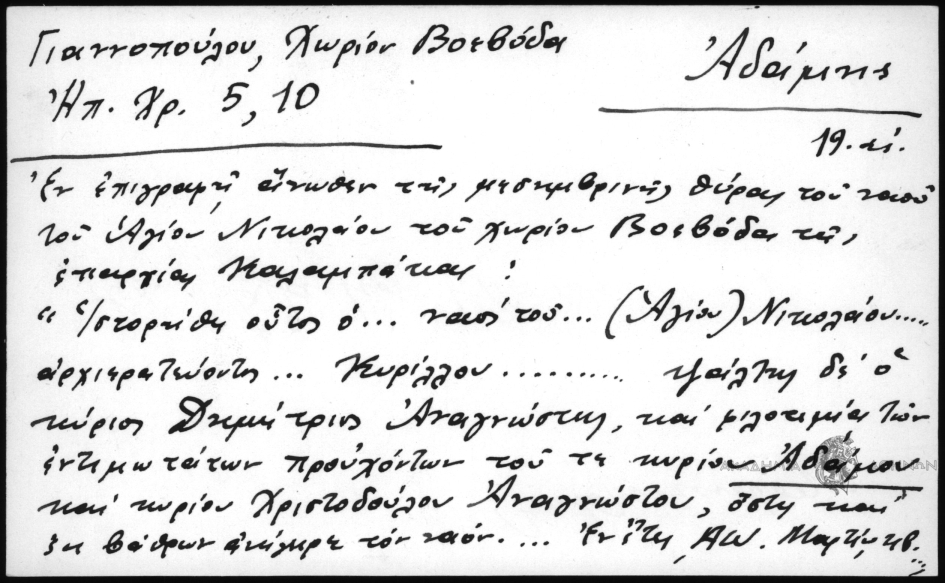 Γιαννοπούλου, Χωρίον Βοεβόδα
Ἠπ. Χρ. 5, 10
Ἀδάμης
19. αἰ.
Ἐν ἐπιγραφῇ ἄνωθεν τῆς μεσημβρινῆς θύρας τοῦ ναοῦ
τοῦ Ἁγίου Νικολάου τοῦ χωρίου Βοεβόδα τῆς
ἐπαρχίας Καλαμπάκας :
"Ἱστορήθη οὗτος ὁ... ναὸς τοῦ... (Ἁγίου) Νικολάου.....
ἀρχιερατεύοντος ... Κυρίλλου .......... ψάλτης δέ ὁ
κύριος Δημήτριος Ἀναγνώστης, καί φιλοτιμίᾳ τῶν
ἐντιμωτάτων προυχόντων τοῦ τε κυρίου Ἀδάμου
καί κυρίου Χριστοδούλου Ἀναγνώστου, ὅστις καί
ἐκ βάθρων ἀνήγειρε τόν ναόν. ... Ἐν ἔτει ͵ΑΩ. Μαρτίῳ κβ.